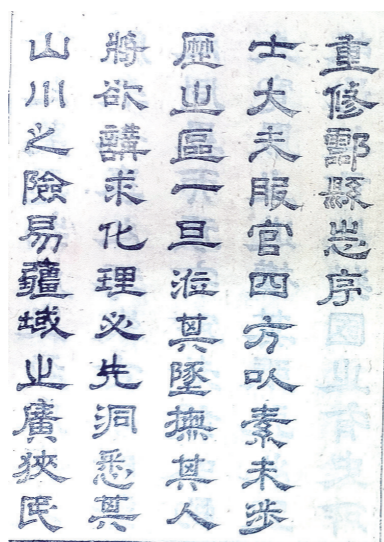 重修鄠縣志序
士大夫服官四方以素未步
歷之區一旦涖其墜撫其人
將欲講求化理必先洞悉其
山川之險易疆域之廣狹民